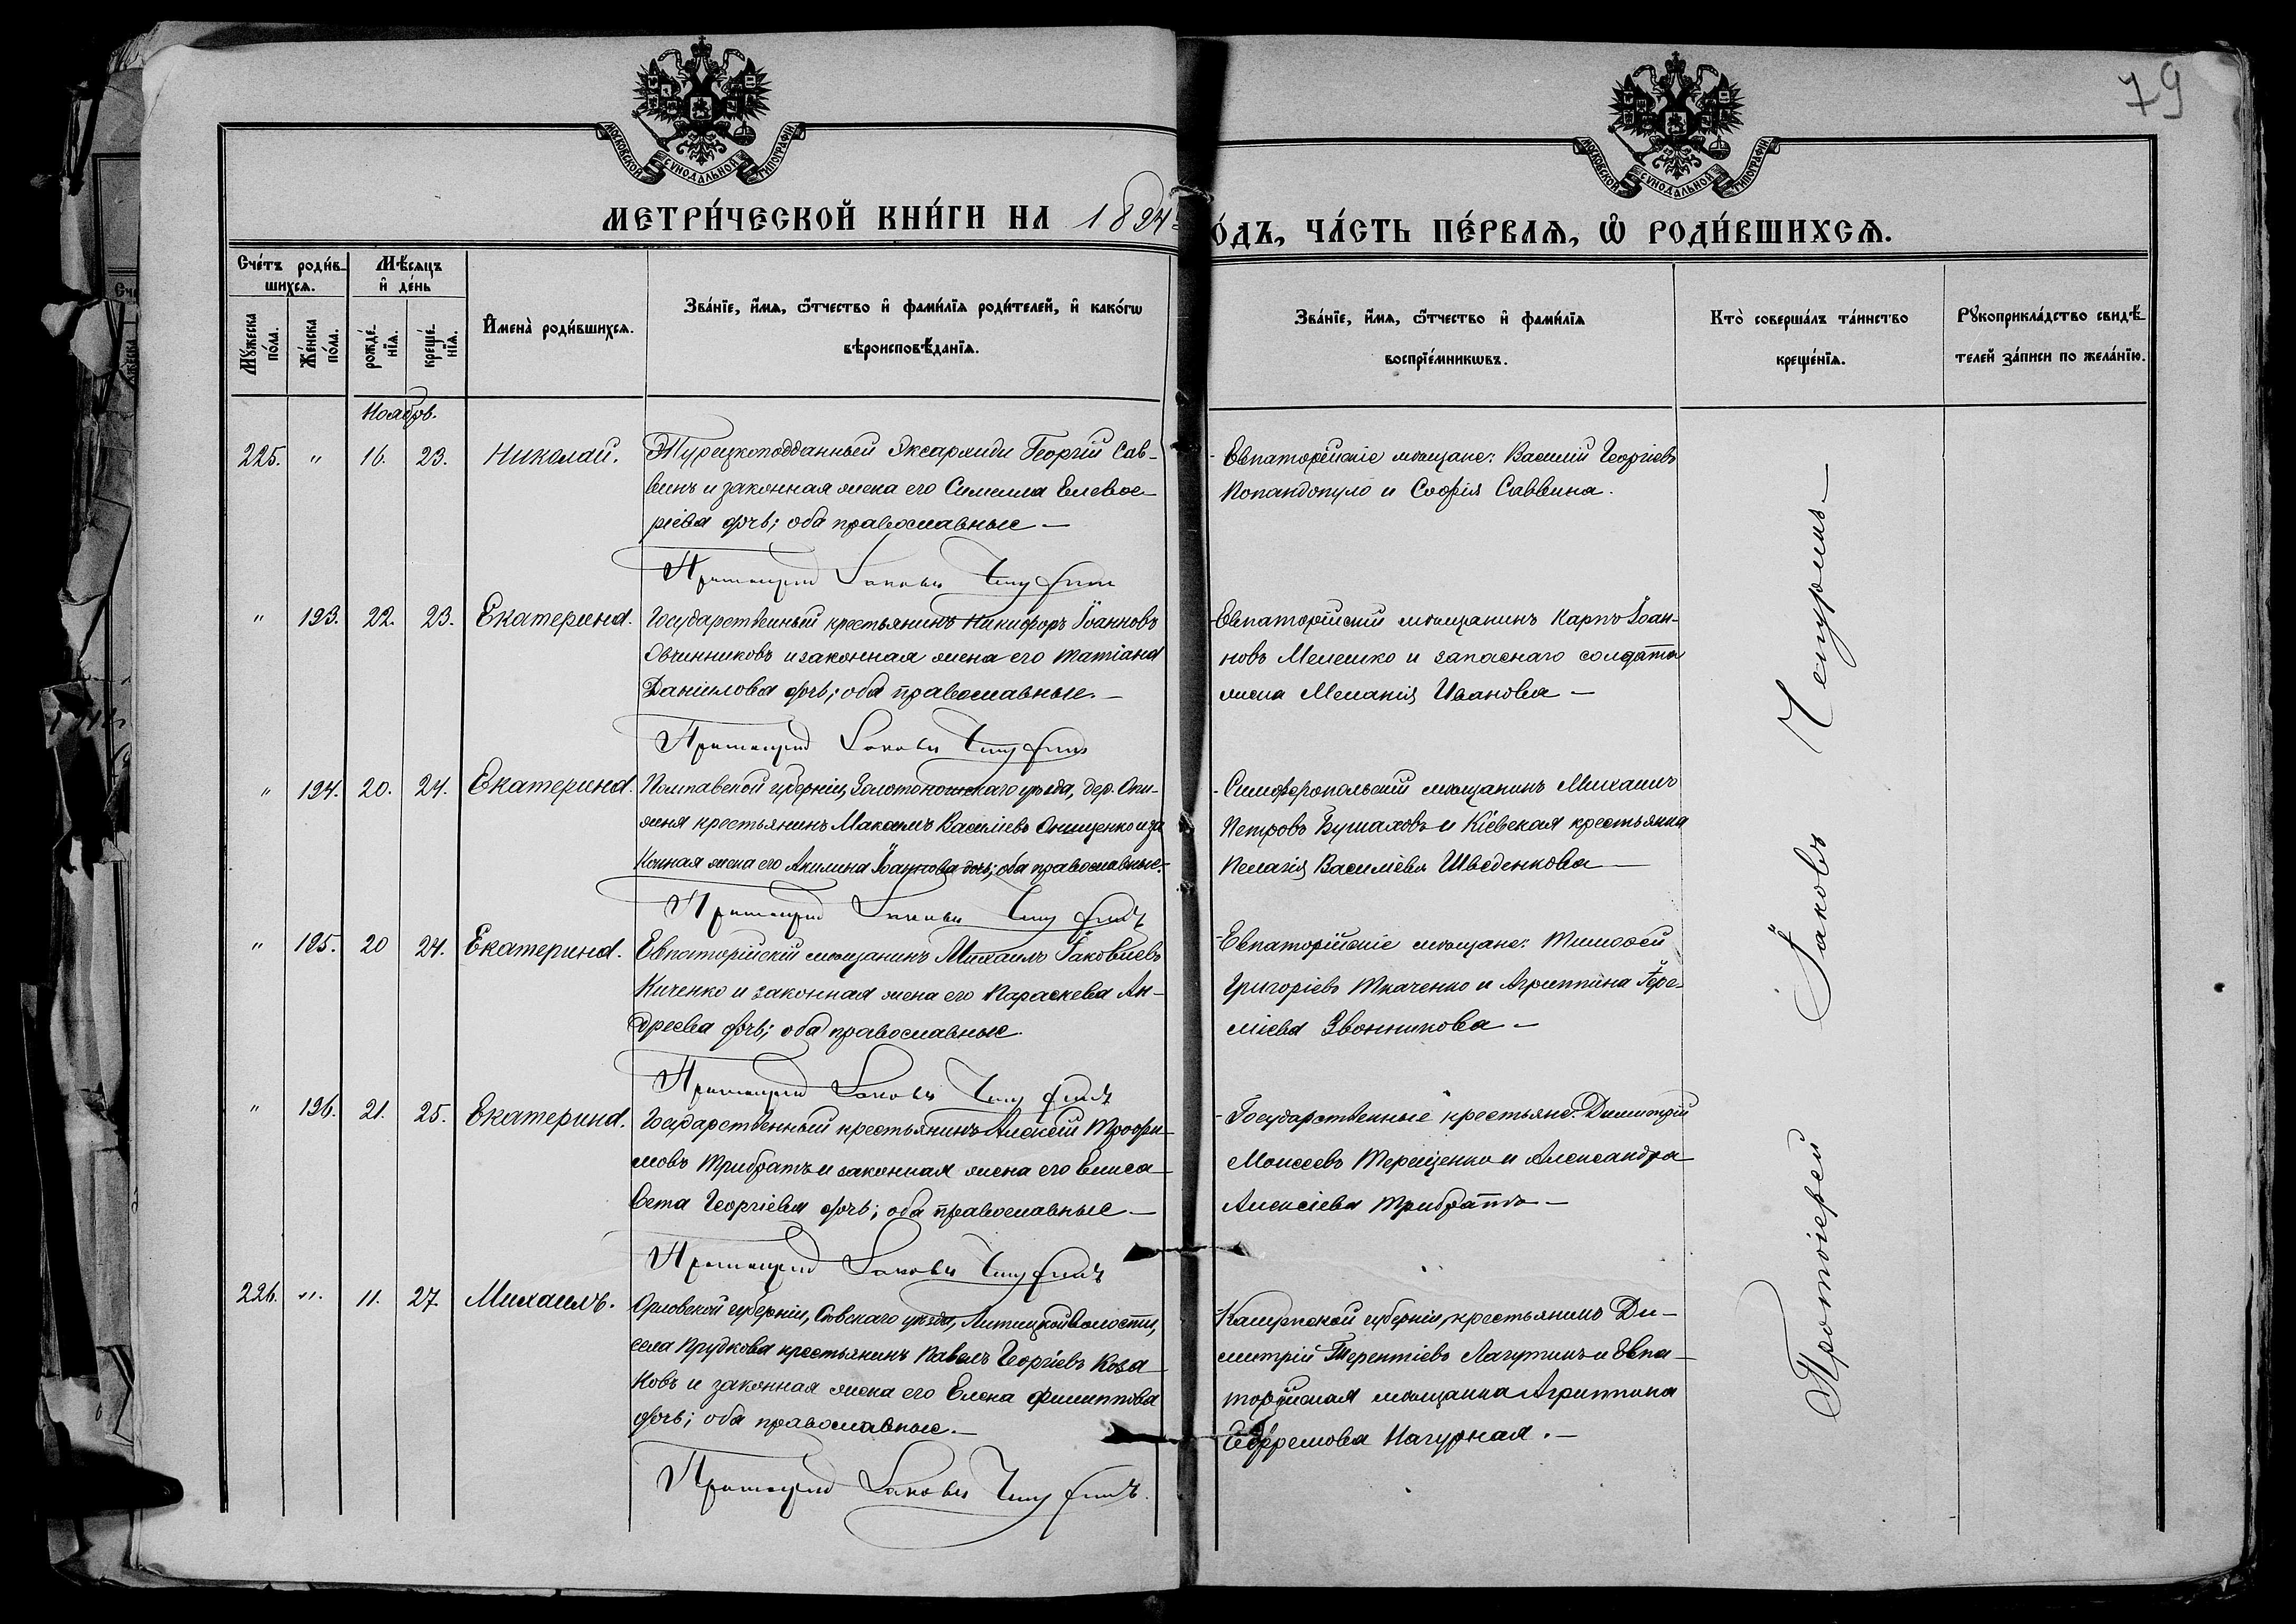 79
МОСКОВСКОЙ СУНОДАЛЬНОЙ ТИПОГРАФІИ
МОСКОВСКОЙ СУНОДАЛЬНОЙ ТИПОГРАФІИ
МЕТРИ́ЧЕСКОЙ КНИ́ГИ НА 1894 ГО́ДЪ, ЧА́СТЬ ПЕ́РВАѦ, Ѡ҆ РОДИ́ВШИХСѦ.
Сче́тъ роди́в-
шихсѧ.
Мꙋ́жеска по́ла.
Же́нска по́ла.
Мѣ́сѧцъ
и҆ де́нь
рожде́-
нїѧ.
креще́-
нїѧ.
И҆мена̀ роди́вшихсѧ.
Зва́нїе, и҆́мѧ, ѻ҆́тчество и҆ фами́лїѧ роди́телей, и҆ како́гѡ
вѣроисповѣ́данїѧ.
Зва́нїе, и҆́мѧ, ѻ҆́тчество и҆ фами́лїѧ
воспрїе́мникѡвъ.
Кто̀ соверша́лъ та́инство
креще́нїѧ.
Рꙋкоприкла́дство свидѣ́-
телей за́писи по жела́нїю.
Ноябрь.
225. " 16. 23. Николай.
Турецкоподданный Эксархиди Георгій Сав-
винъ и законная жена его Симелла Елевѳе-
ріева дочь; оба православные —
Протоіерей Іаковъ Чепуринъ
Евпаторійскіе мѣщане: Василій Георгіевъ
Попандопуло и Софія Саввина.
" 193. 22. 23. Екатерина.
Государственный крестьянинъ Никифоръ Іоанновъ
Овчинниковъ и законная жена его Татіана
Даніилова дочь; оба православные. —
Протоіерей Іаковъ Чепуринъ
Евпаторійскій мѣщанинъ Карпъ Іоан-
новъ Мелешко и запаснаго солдата
жена Меланія Иванова —
" 194. 20. 24. Екатерина.
Полтавской губерніи, Золотоношскаго уѣзда, дер.
крестьянинъ Максимъ Василіевъ Онищенко и за
конная жена его Акилина Іоаннова дочь; оба православные.
Протоіерей Іаковъ Чепуринъ
Симферопольскій мѣщанинъ Михаилъ
Петровъ и Кіевская крестьянка
Пелагія Василіева Шведенкова —
" 195. 20 24. Екатерина.
Евпаторійскій мѣщанинъ Михаилъ Іаковлевъ
Киченко и законная жена его Параскева Ан-
дреева дочь; оба православные.
Протоіерей Іаковъ Чепуринъ
Евпаторійскіе мѣщане: Тимоѳей
Григоріевъ Ткаченко и Агриппина Іере-
міева Звонникова —
" 196. 21. 25. Екатерина.
Государственный крестьянинъ Алексій Трофи-
мовъ Трибратъ и законная жена его Елиса-
вета Георгіева дочь; оба православные —
Протоіерей Іаковъ Чепуринъ
Государственные крестьяне: Димитрій
Моисеевъ Терещенко и Александра
Алексіева Трибратъ —
226. " 11. 27. Михаилъ.
Орловской губерніи, Сѣвскаго уѣзда, волости,
села Прудкова крестьянинъ Павелъ Георгіевъ Коза-
ковъ и законная жена его Елена Филиппова
дочь; оба православные. —
Протоіерей Іаковъ Чепуринъ.
Калужской губерніи, крестьянинъ Ди-
митрій Терентіевъ Лагутинъ и Евпа-
торійская мѣщанка Агриппина
Ефремова Нагурная. —
Протоіерей Іаковъ Чепуринъ —